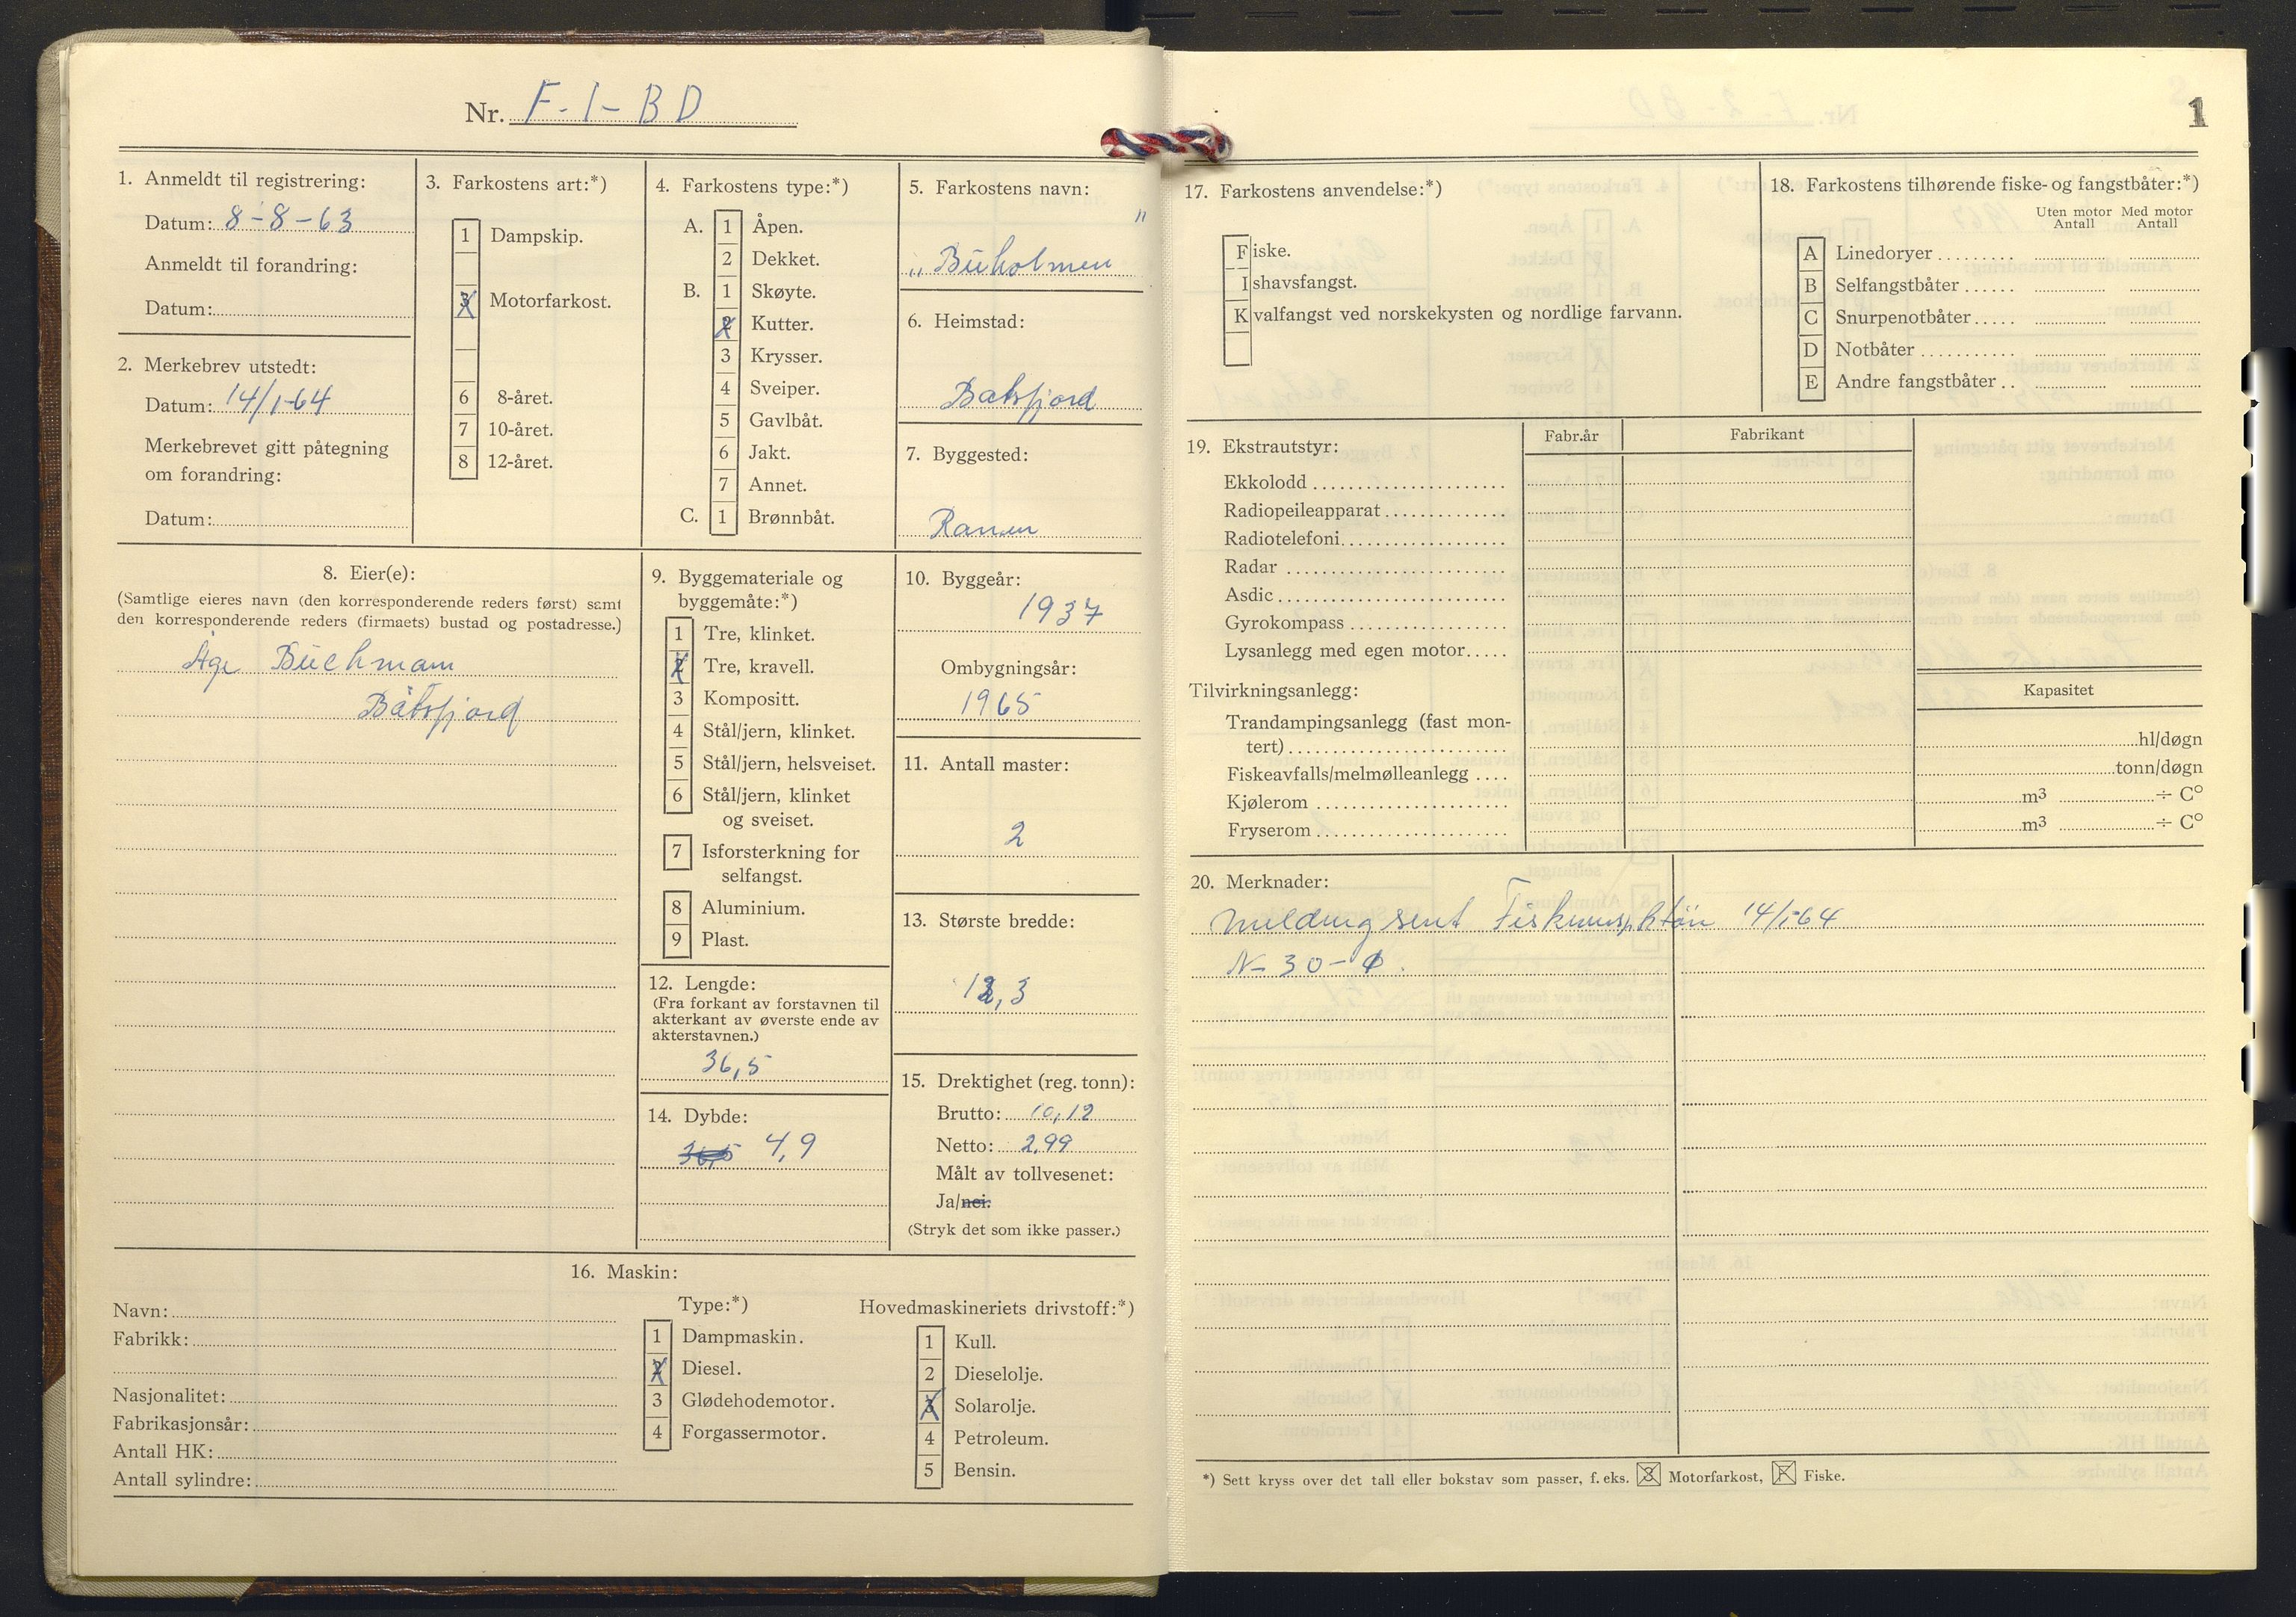 Nr. F-1-BD
1
1. Anmeldt til registrering:
Datum: 8-8-63
Anmeldt til forandring:
Datum:
2. Merkebrev utstedt:
Datum: 14/1-64
Merkebrevet gitt påtegning
om forandring:
Datum:
3. Farkostens art:*)
1 Dampskip.
3 Motorfarkost.
6 8-året.
7 10-året.
8 12-året.
4. Farkostens type:*)
A. 1 Åpen.
2 Dekket.
B. 1 Skøyte.
2 Kutter.
3 Krysser.
4 Sveiper.
5 Gavlbåt.
6 Jakt.
7 Annet.
C. 1 Brønnbåt.
5. Farkostens navn:
"Buholmen"
6. Heimstad:
Båtsfjord
7. Byggested:
Ranen
8. Eier(e):
(Samtlige eieres navn (den korresponderende reders først) samt
den korresponderende reders (firmaets) bustad og postadresse.)
Åge Buchmann
Båtsfjord
9. Byggemateriale og
byggemåte:*)
1 Tre, klinket.
2 Tre, kravell.
3 Kompositt.
4 Stål/jern, klinket.
5 Stål/jern, helsveiset.
6 Stål/jern, klinket
og sveiset.
7 Isforsterkning for
selfangst.
8 Aluminium.
9 Plast.
10. Byggeår:
1937
Ombygningsår:
1965
11. Antall master:
2
12. Lengde:
(Fra forkant av forstavnen til
akterkant av øverste ende av
akterstavnen.)
36,5
13. Største bredde:
12,3
14. Dybde:
36,5 4,9
15. Drektighet (reg. tonn):
Brutto: 10,12
Netto: 2,99
Målt av tollvesenet:
Ja/nei.
(Stryk det som ikke passer.)
16. Maskin:
Navn:
Fabrikk:
Nasjonalitet:
Fabrikasjonsår:
Antall HK:
Antall sylindre:
Type:*)
1 Dampmaskin.
2 Diesel.
3 Glødehodemotor.
4 Forgassermotor.
Hovedmaskineriets drivstoff:*)
1 Kull.
2 Dieselolje.
3 Solarolje.
4 Petroleum.
5 Bensin.
17. Farkostens anvendelse:*)
Fiske.
Ishavsfangst.
Kvalfangst ved norskekysten og nordlige farvann.
18. Farkostens tilhørende fiske- og fangstbåter:*)
Uten motor Med motor
Antall Antall
A Linedoryer
B Selfangstbåter
C Snurpenotbåter
D Notbåter
E Andre fangstbåter
19. Ekstrautstyr:
Fabr.år Fabrikant
Ekkolodd
Radiopeileapparat
Radiotelefoni
Radar
Asdic
Gyrokompass
Lysanlegg med egen motor
Tilvirkningsanlegg:
Kapasitet
Trandampingsanlegg (fast mon-
tert) hl/døgn
Fiskeavfalls/melmølleanlegg tonn/døgn
Kjølerom m³ ÷ C°
Fryserom m³ ÷ C°
20. Merknader:
Melding sent 14/1-64
N-30-
*) Sett kryss over det tall eller bokstav som passer, f. eks. 3 Motorfarkost, F Fiske.